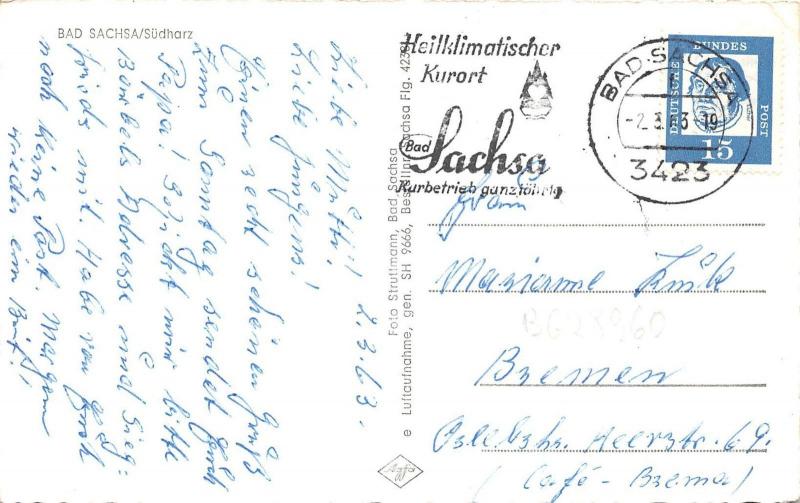 BAD SACHSA/Südharz
2.3.63.
Liebe Mutti,
Liebe Jungens!
Einen recht schönen Gruß
zum Sonntag sendet Euch
Papa! Schickt mir bitte
Bärbels Adresse und Sieg-
frieds mit. Habe von Euch
noch keine Post. Morgen
wieder ein Brief!
Foto Struttmann, Bad Sachsa
e Luftaufnahme, gen. SH 9666, Bestellnr. Sachsa Flg. 423
Agfa
Heilklimatischer
Kurort
Bad Sachsa
Kurbetrieb ganzjährig
BAD SACHSA
-2.3.63-19
3423
DEUTSCHE BUNDESPOST
15
Frau
Marianne
BG28960
Bremen
Oslebshs. Heerstr. 69.
(Café-Brema)